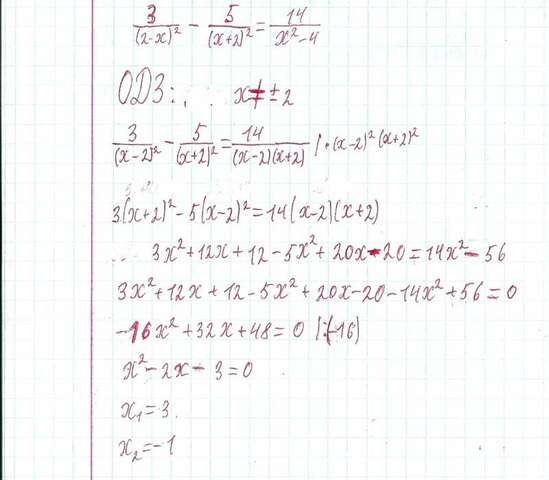 3/(2-x)² - 5/(x+2)² = 14/(x²-4)
ОДЗ: x ≠ ±2
3/(x-2)² - 5/(x+2)² = 14/((x-2)(x+2)) |·(x-2)²(x+2)²
3(x+2)² - 5(x-2)² = 14(x-2)(x+2)
3x² + 12x + 12 - 5x² + 20x - 20 = 14x² - 56
3x² + 12x + 12 - 5x² + 20x - 20 - 14x² + 56 = 0
-16x² + 32x + 48 = 0 |:(-16)
x² - 2x - 3 = 0
x₁ = 3
x₂ = -1